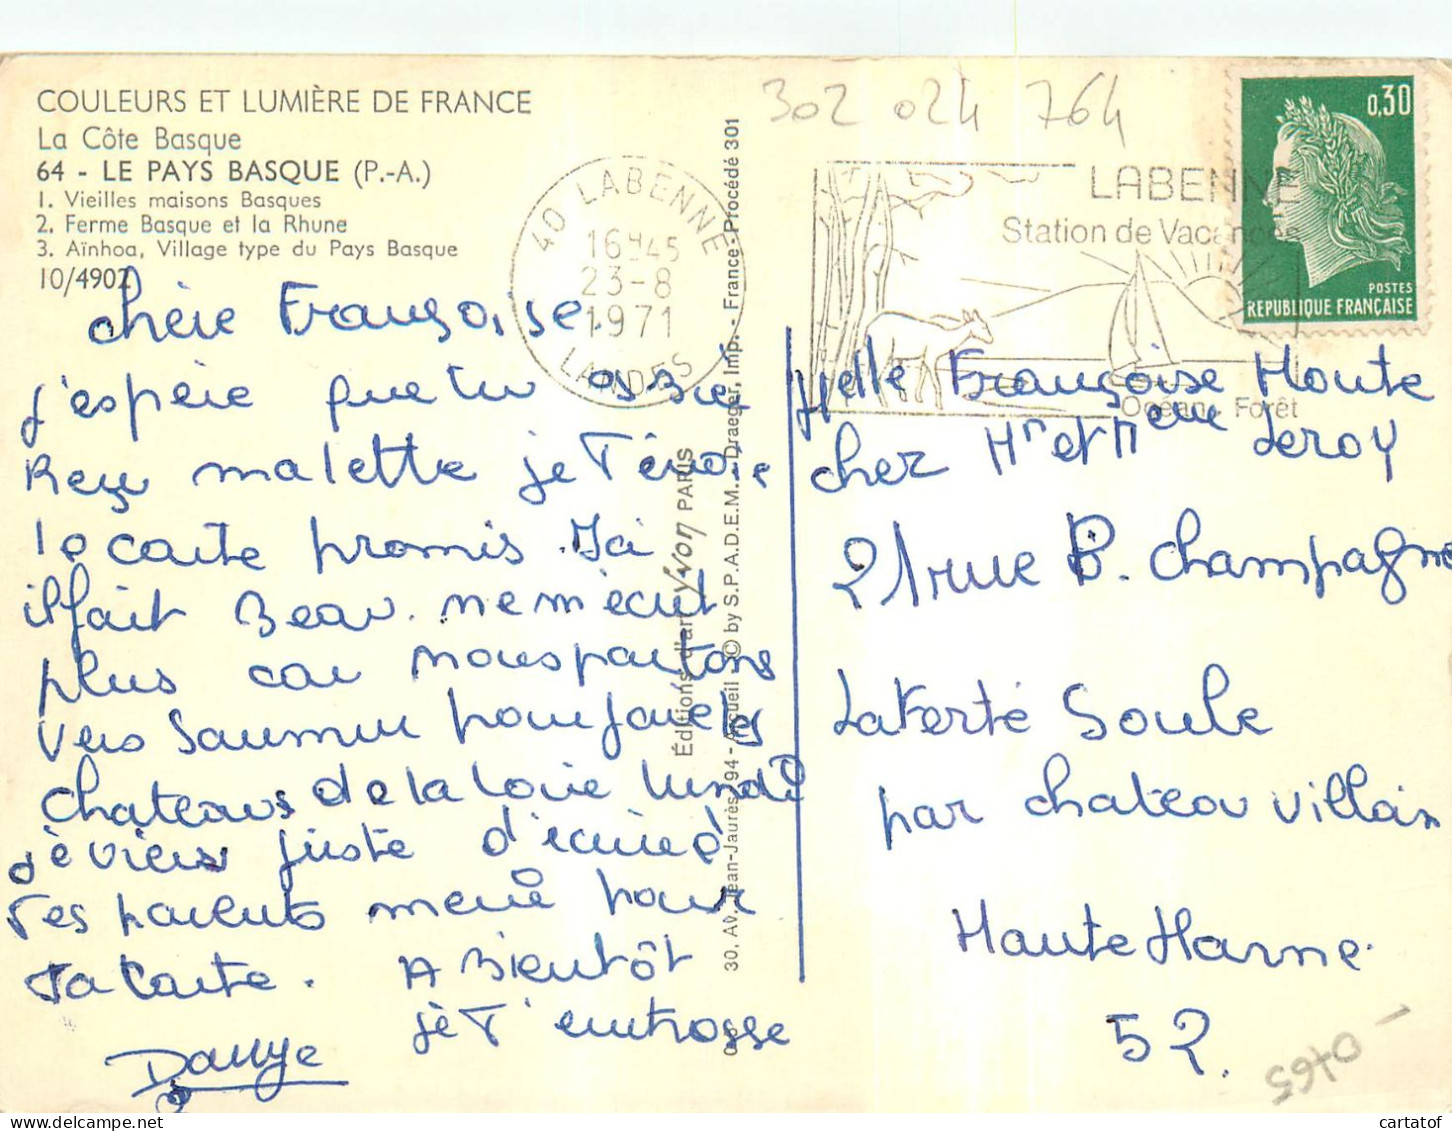 COULEURS ET LUMIÈRE DE FRANCE
La Côte Basque
64 - LE PAYS BASQUE (P.-A.)
1. Vieilles maisons Basques
2. Ferme Basque et la Rhune
3. Aïnhoa, Village type du Pays Basque
10/4902
chère Françoise.
j'espère que tu as Bien
Reçu malette je T'envoie
la carte promis. Ici
il fait Beau. ne m'écrit
plus car nous partons
vers Saumur pour faire les
chateaux de la Loire lundi
je viens juste d'écrire à
Tes parents merci pour
Ta Carte. A Bientôt
je T'embrasse
Danye
30, Av. Jean-Jaurès - 94 - Arcueil - © by S.P.A.D.E.M. - Draeger, Imp. - France - Procédé 301
Éditions d'art Yvon PARIS
302 024 764
40 LABENNE
16H45
23-8
1971
LANDES
LABENNE
Station de Vacances
Océan - Forêt
0,30
POSTES
REPUBLIQUE FRANÇAISE
Melle Françoise Houte
chez Mr et Mme Leroy
21 rue B. Champagne
La Ferté Soule
par chateau villain
Haute Marne
52.
cartatof